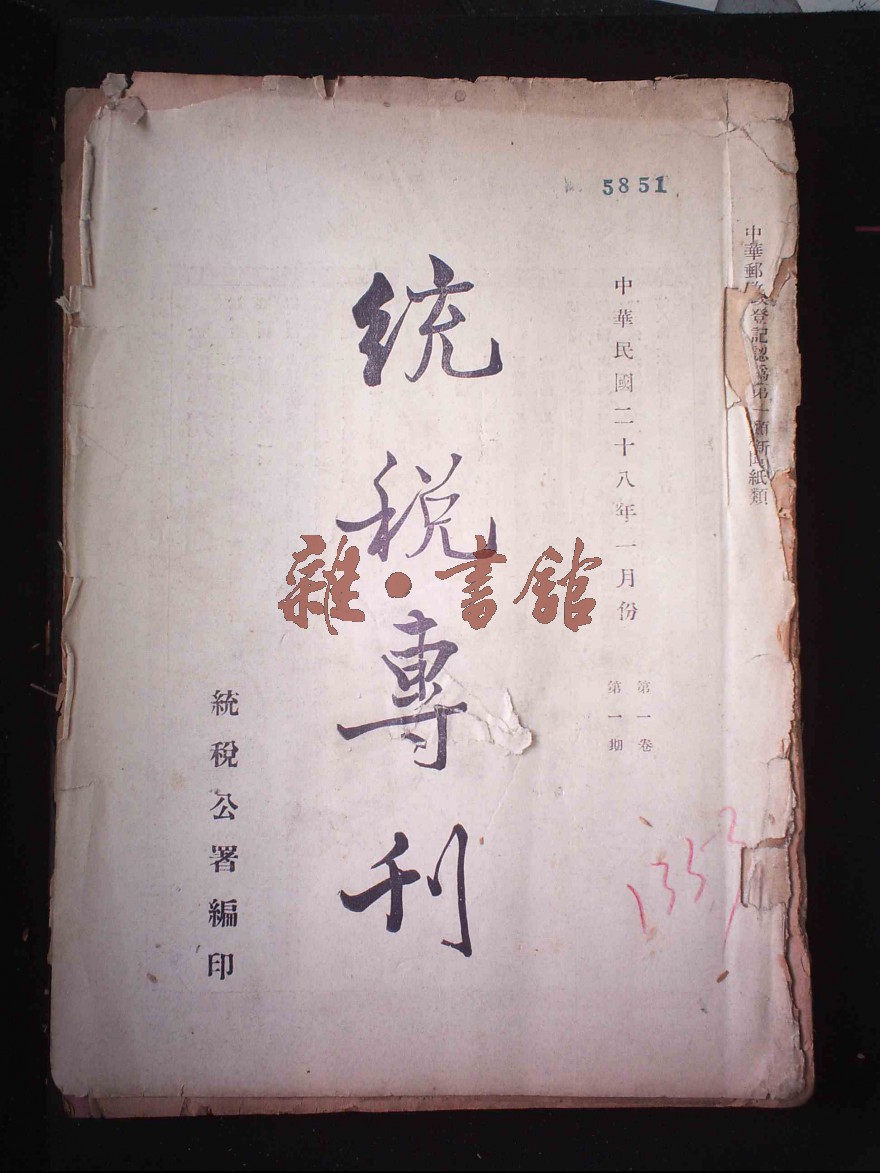 5851
中華郵政登記認爲第一類新聞紙類
中華民國二十八年一月份
第一卷
第一期
統稅專刊
統稅公署編印
雜・書館